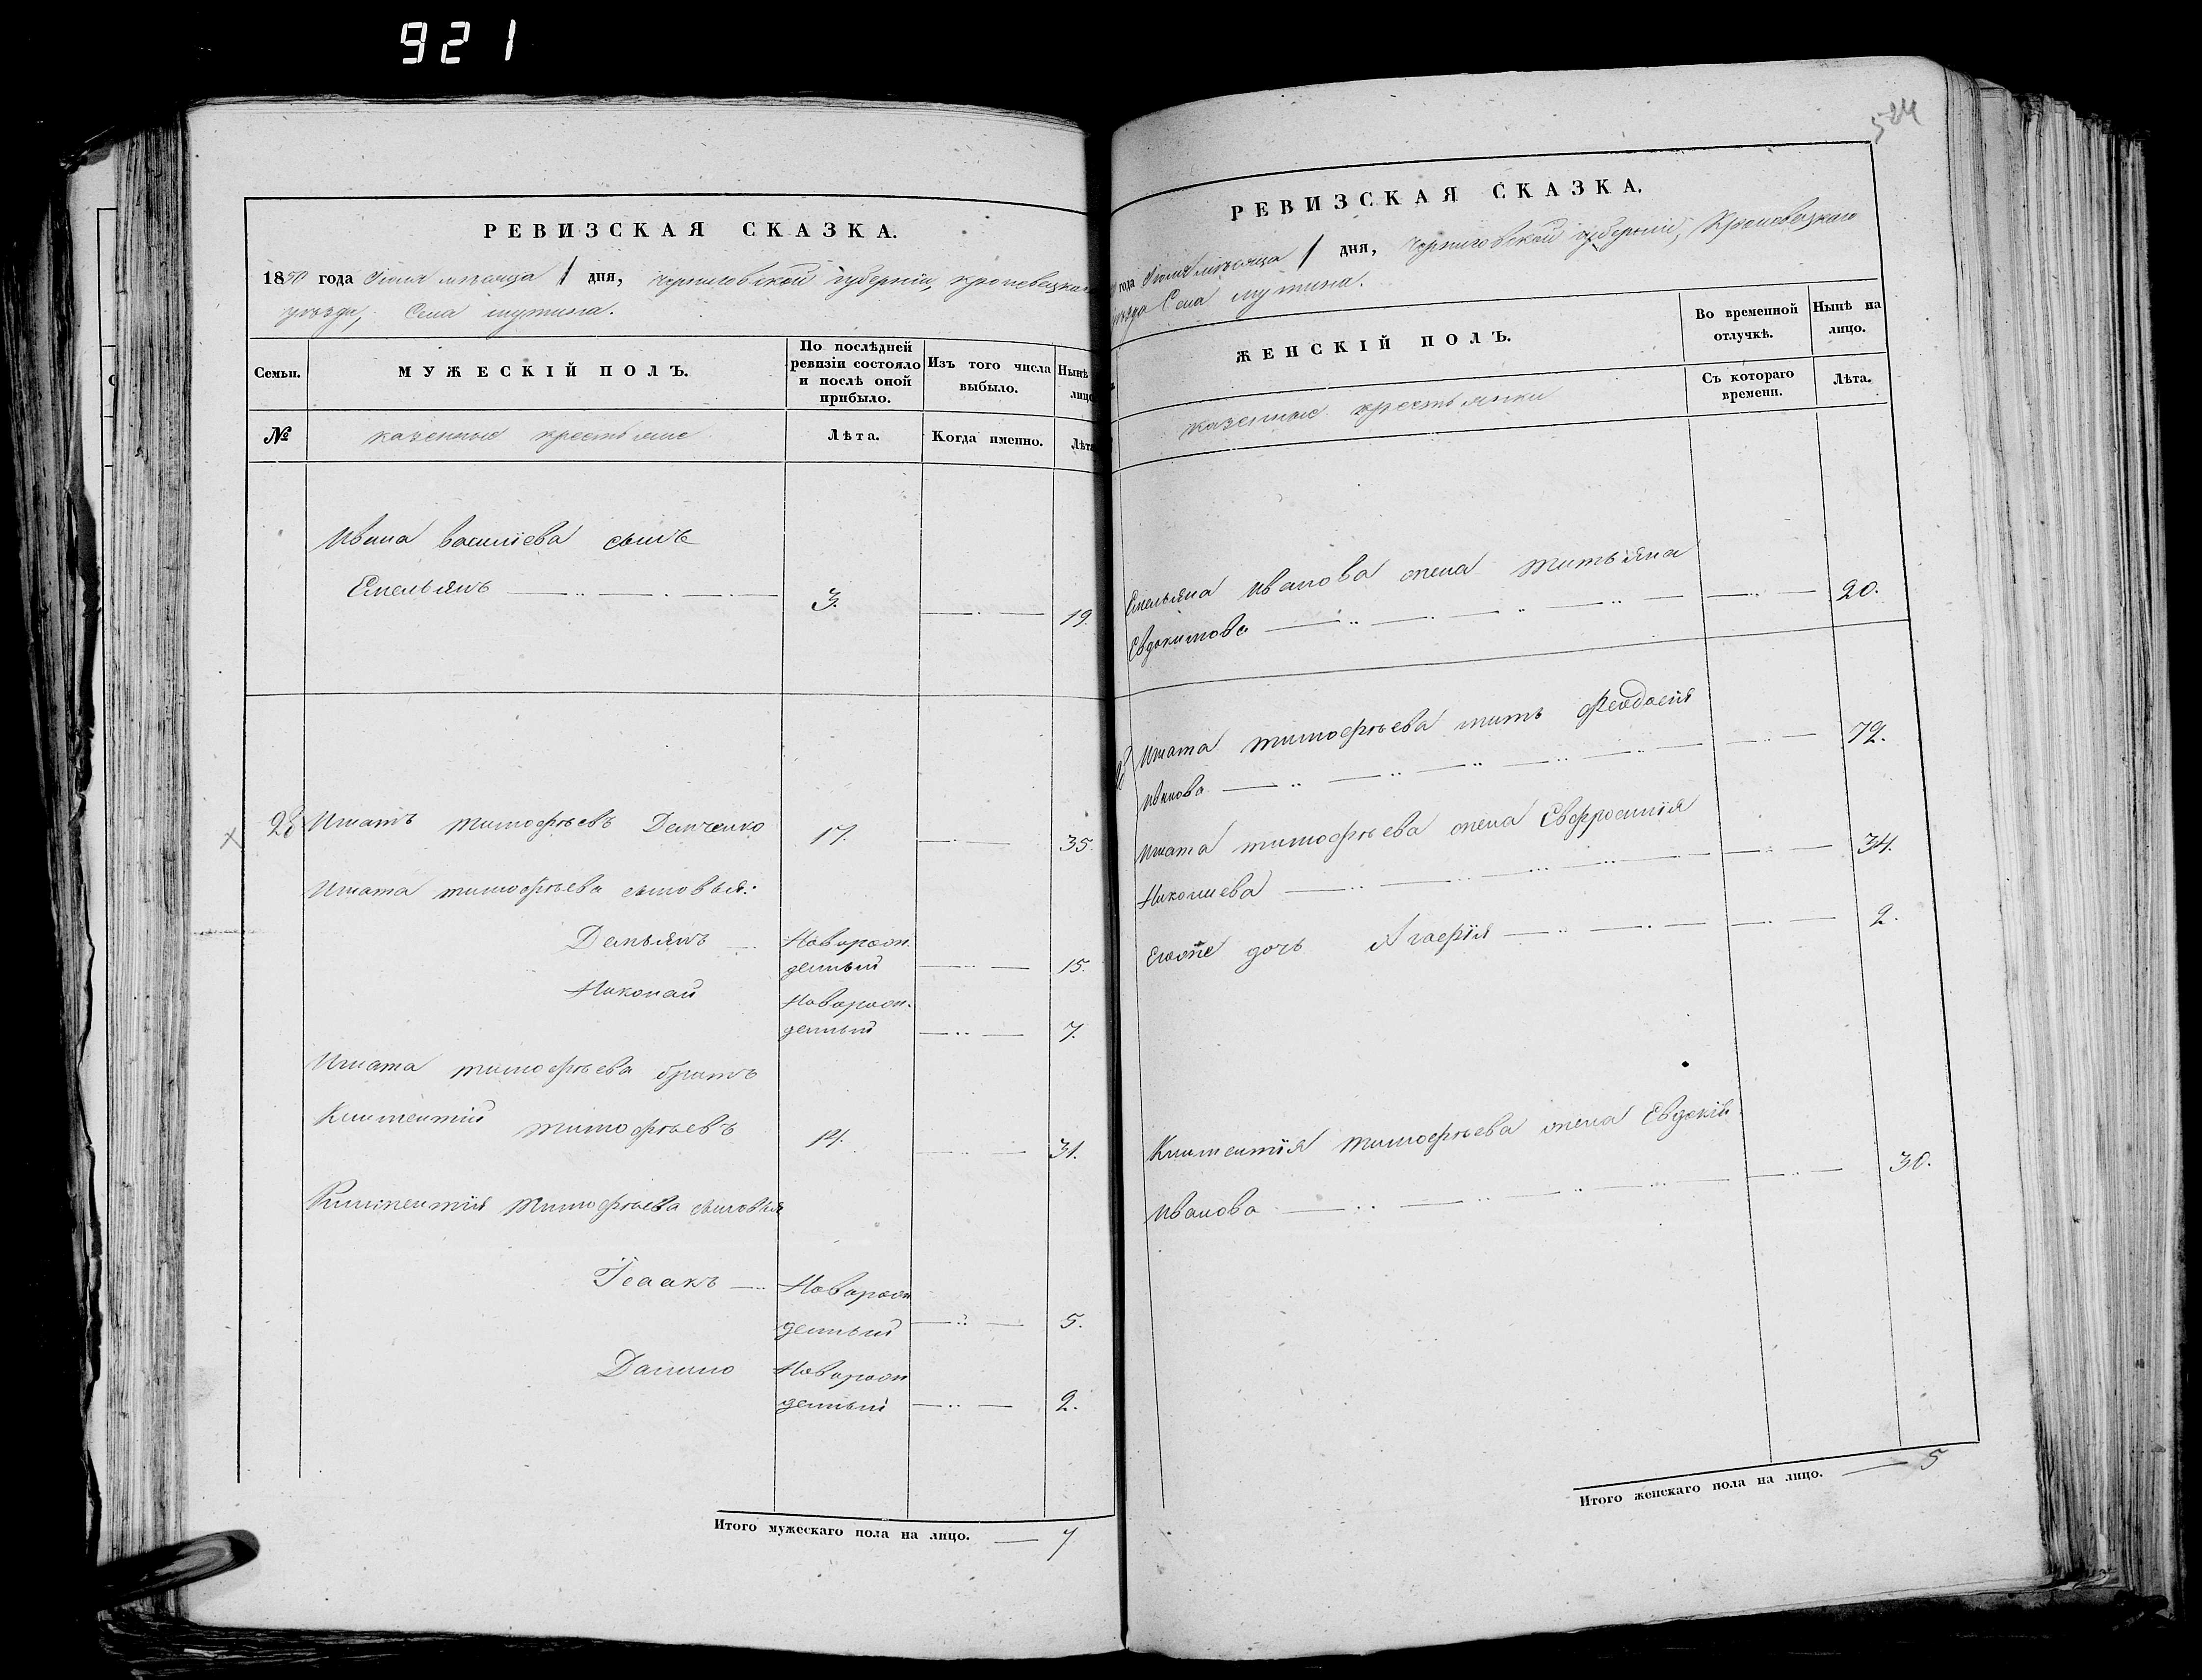 921
РЕВИЗСКАЯ СКАЗКА.
1850 года Іюля мѣсяца 1 дня, Черниговской губерніи, Кролевецкаго
уѣзда, Села Мутина.
Семьи.
МУЖЕСКІЙ ПОЛЪ.
По послѣдней
ревизіи состояло
и послѣ оной
прибыло.
Изъ того числа
выбыло.
Нынѣ
лицо
№
казенные крестьяне
Лѣта.
Когда именно.
Лѣта
Ивана Василіева сынъ
Емельянъ 3. 19.
28 Игнатъ Тимофѣевъ Демченко 17. 35.
Игната Тимофѣева сыновья:
Демьянъ Новорож-
денный 15.
Николай Новорож-
денный 7.
Игната Тимофѣева братъ
Климентій Тимофѣевъ 14. 31.
Климентія Тимофѣева сыновья
Ісаакъ Новорож
денный 5.
Данило Новорож
денный 2.
Итого мужескаго пола на лицо. 7
524
РЕВИЗСКАЯ СКАЗКА.
года Іюля мѣсяца 1 дня, Черниговской губерніи, Кролевецкаго
уѣзда Села Мутина.
ЖЕНСКІЙ ПОЛЪ.
Во временной
отлучкѣ.
Нынѣ на
лицо.
казенные крестьянки
Съ котораго
времени.
Лѣта.
Емельяна Иванова жена Татьяна
Евдокимова 20.
Игната Тимофѣева мать Феодосія
Иванова 72.
Игната Тимофѣева жена Евфросинія
Николаева 34.
Егоже дочь Агафія 2.
Климентія Тимофѣева жена Евдокія
Иванова 30.
Итого женскаго пола на лицо. 5